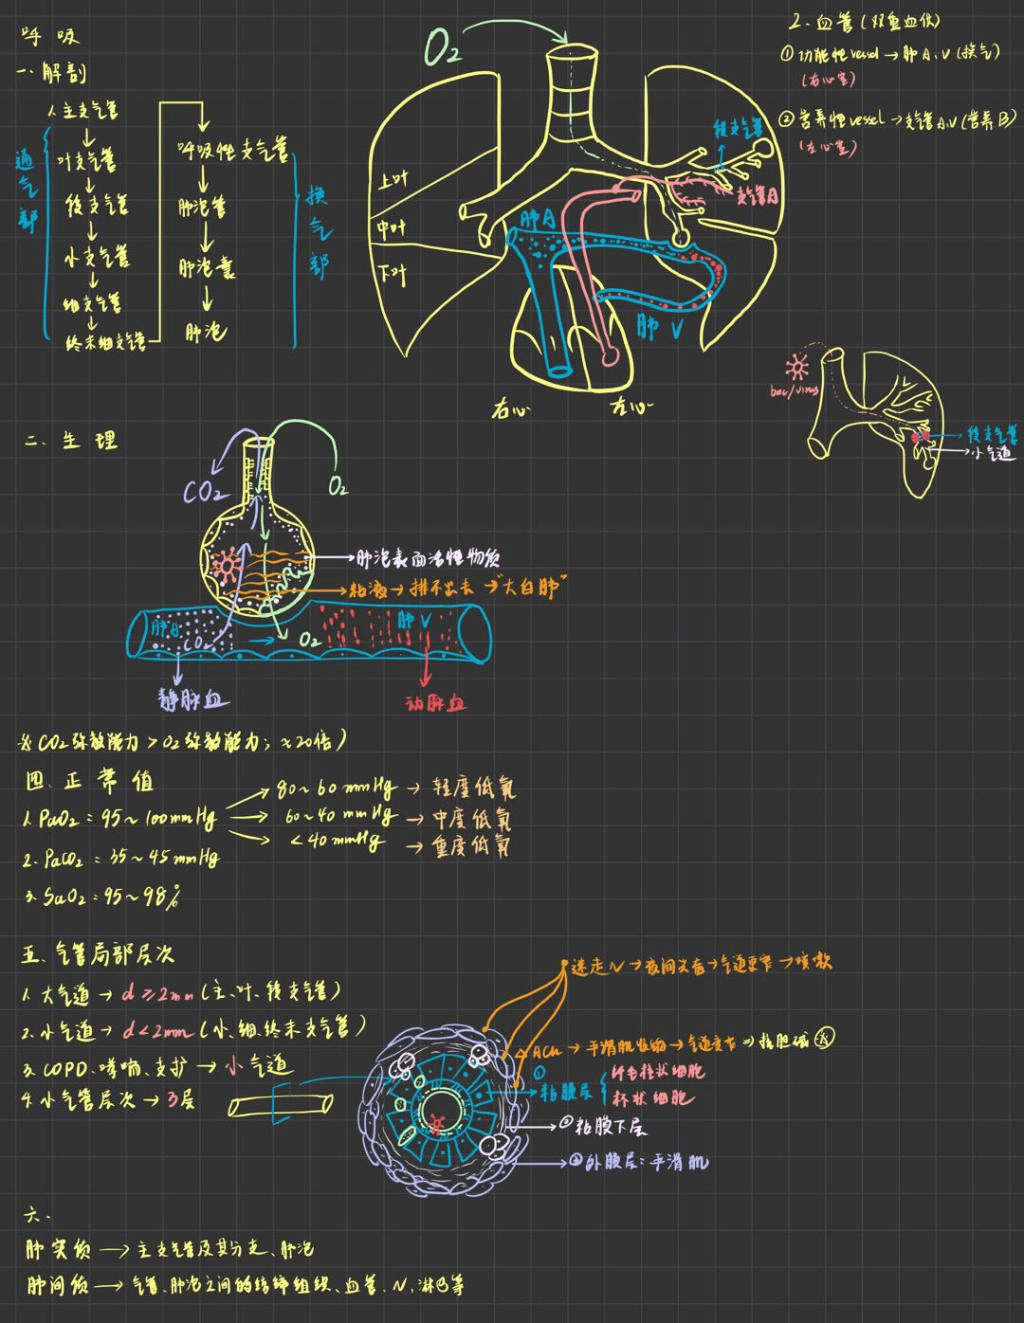 呼吸
一、解剖
1.主支气管
叶支气管
段支气管
小支气管
细支气管
终末细支气管
通气部
呼吸性支气管
肺泡管
肺泡囊
肺泡
换气部
O2
上叶
中叶
下叶
段支气管
支气管A
肺A
肺V
右心
左心
2.血管(双重血供)
①功能性vessel→肺A、V(换气)
(右心室)
②营养性vessel→支气管A、V(营养)
(左心室)
bac/virus
段支气管
小气道
二、生理
CO2
O2
→肺泡表面活性物质
→粘液→排不出去→"大白肺"
肺A
CO2
O2
肺V
静脉血
动脉血
※CO2弥散能力>O2弥散能力; ×20倍)
四、正常值
1.PaO2=95~100mmHg
80~60mmHg→轻度低氧
60~40mmHg→中度低氧
<40mmHg→重度低氧
2.PaCO2:35~45mmHg
3.SaO2:95~98%
五、气管局部层次
1.大气道→d≥2mm(主、叶、段支气管)
2.小气道→d<2mm(小、细、终末支气管)
3.COPD、哮喘、支扩→小气道
4.小气管层次→3层
迷走N→夜间兴奋→气道变窄→咳嗽
ACh→平滑肌收缩→气道变窄⇒抗胆碱※
①粘膜层
纤毛柱状细胞
杯状细胞
②粘膜下层
③外膜层:平滑肌
六.
肺实质→主支气管及其分支、肺泡
肺间质→气管、肺泡之间的结缔组织、血管、N、淋巴等